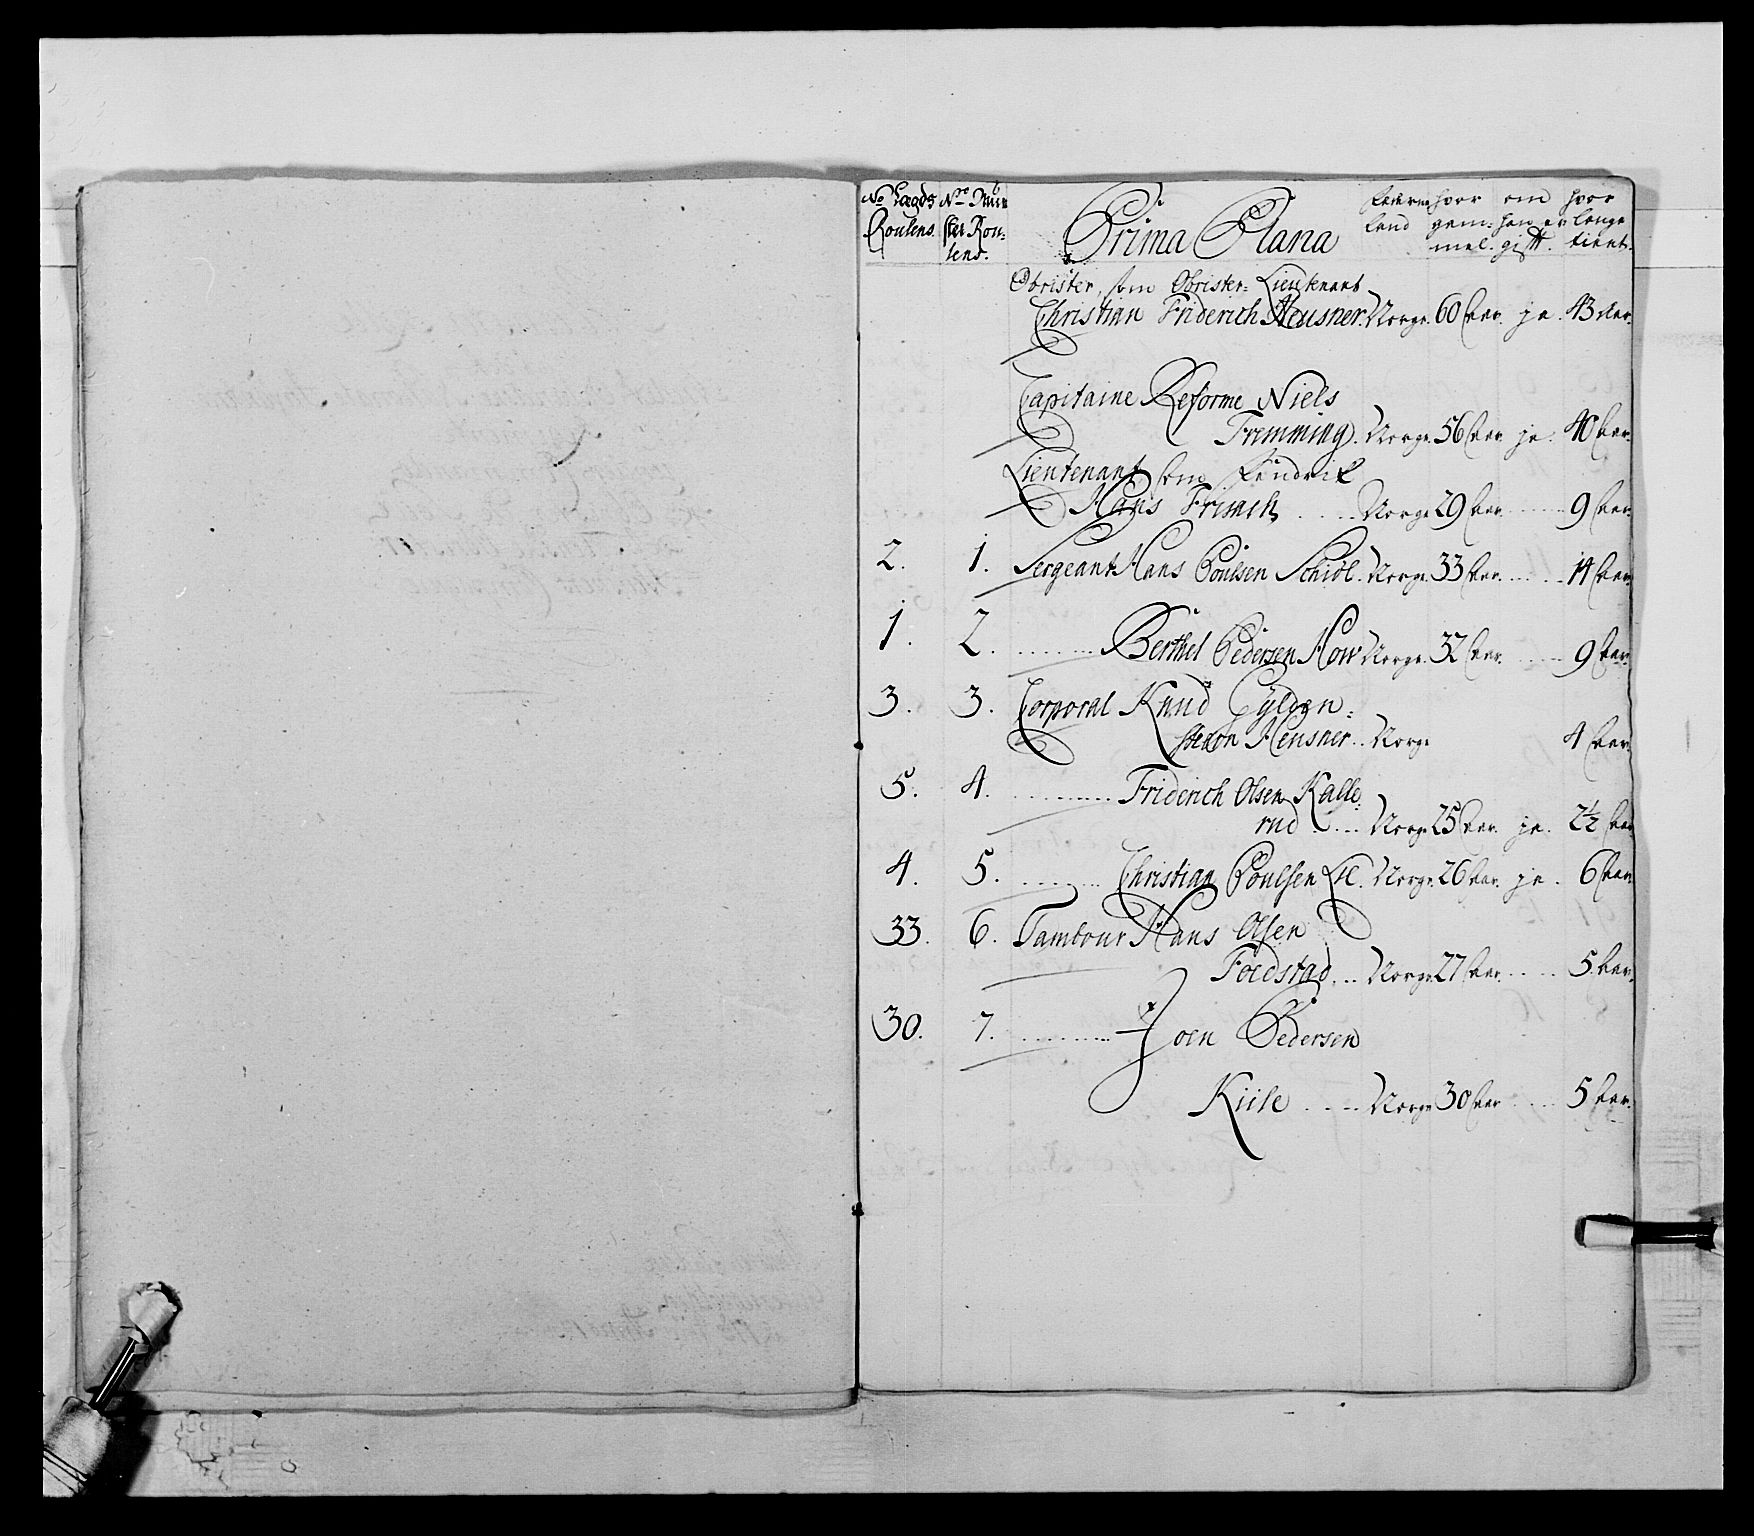 No Lægds No Mun Prima Plana Fæderne hvor om hvor
Roulens. ster Rou= land gam= han er lenge
lens. mel. gift. tient.
Obrister, som Obrister= Lieutenant
Christian Friderich Heusner. Norge. 60 Aar. ja. 43 Aar.
Capitaine Reforme Niels
Fremming. Norge. 56 Aar ja. 40 Aar.
Lieutenant som Fendrik
Hans Frisach, Norge 29 Aar. 9 Aar.
2. 1. Sergeant Hans Poulsen Schiöl. Norge 33 Aar. 14 Aar.
1. 2. Berthel Pedersen How Norge. 32 Aar. 9 Aar.
3. 3. Corporal Knud Gylden=
steen Heusner. Norge 4 Aar.
5. 4. Friderich Olsen Kalle=
rud Norge 25 Aar. ja. 2½ Aar.
4. 5. Christian Poulsen Lil. Norge. 26 Aar. ja. 6 Aar.
33. 6. Tambour Hans Olsen
Foedstad. Norge 27 Aar. 5 Aar.
30. 7. Joen Pedersen
Kiile Norge 30 Aar 5 Aar.